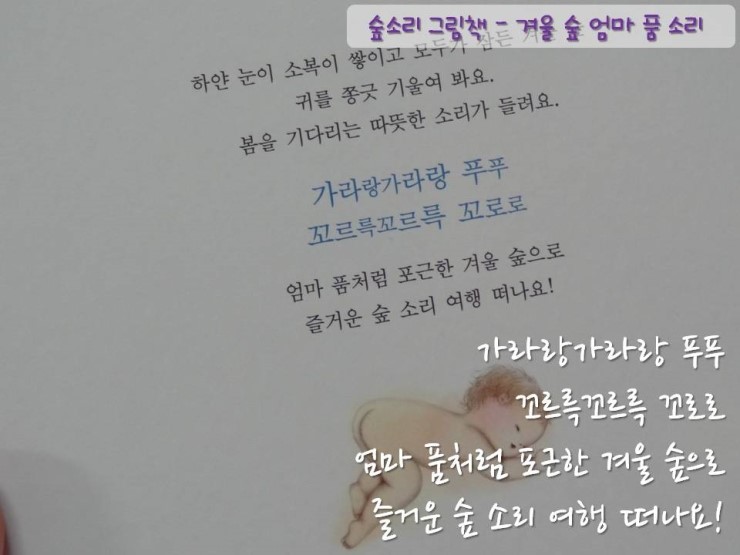 숲소리 그림책 - 겨울 숲 엄마 품 소리
하얀 눈이 소복이 쌓이고 모두가 잠든
귀를 쫑긋 기울여 봐요.
봄을 기다리는 따뜻한 소리가 들려요.
가라랑가라랑 푸푸
꼬르륵꼬르륵 꼬로로
엄마 품처럼 포근한 겨울 숲으로
즐거운 숲 소리 여행 떠나요!
가라랑가라랑 푸푸
꼬르륵꼬르륵 꼬로로
엄마 품처럼 포근한 겨울 숲으로
즐거운 숲 소리 여행 떠나요!